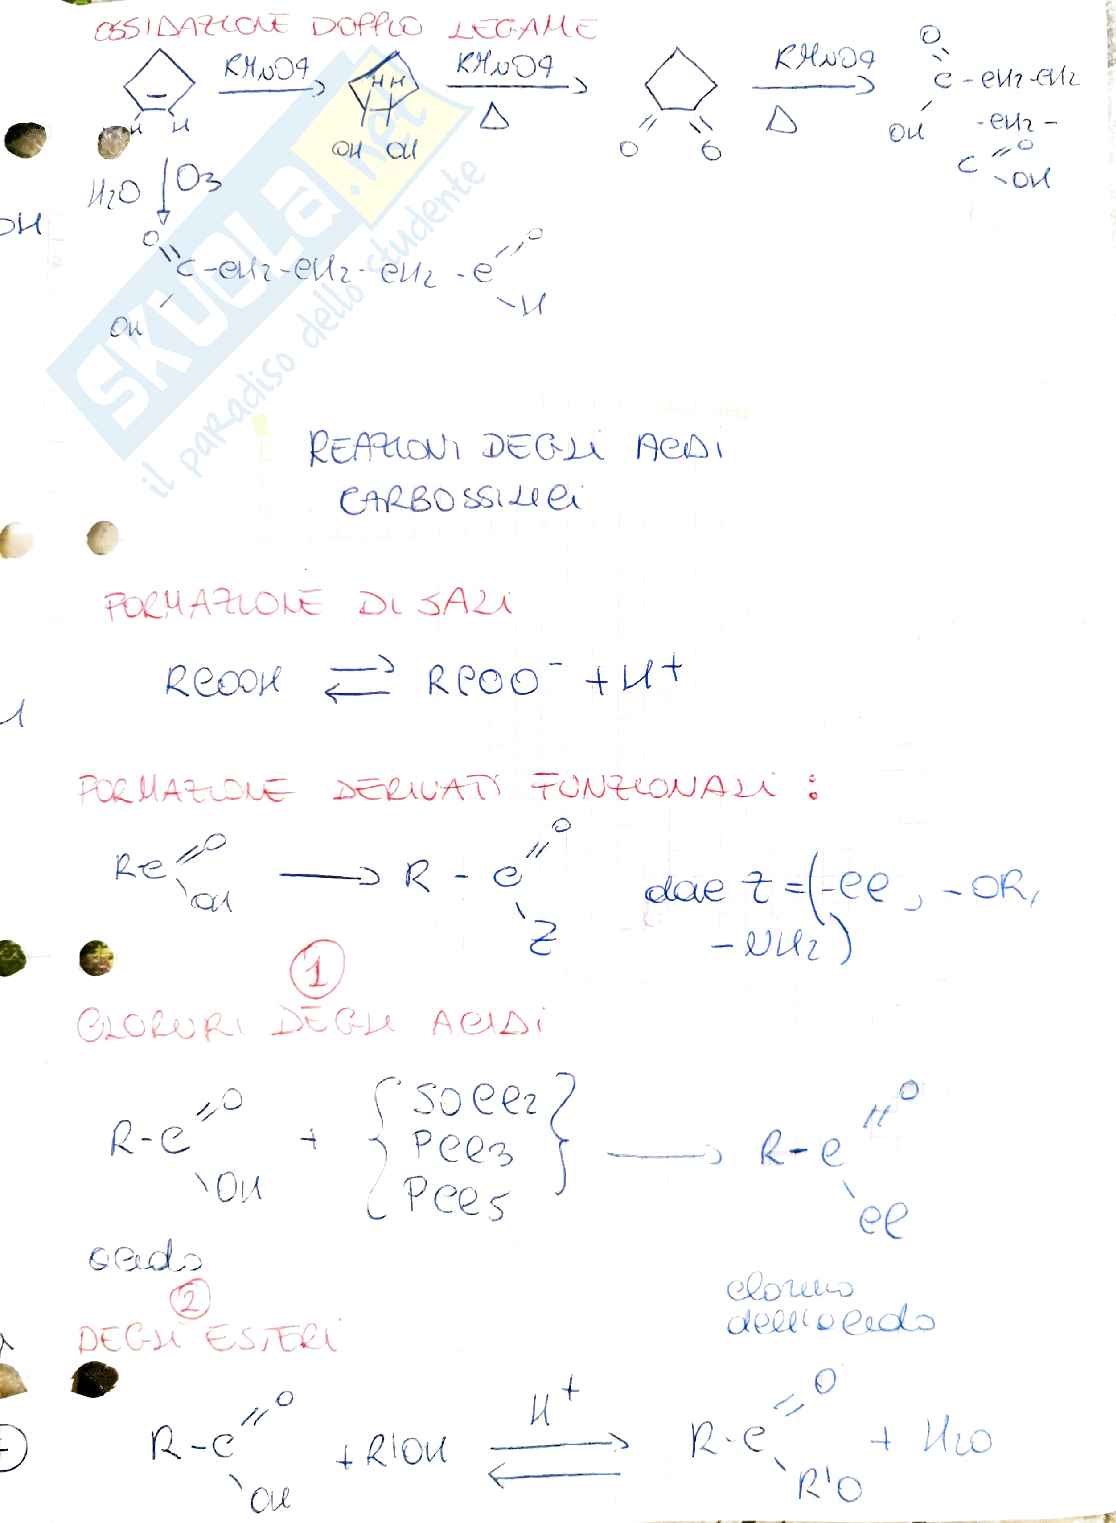 OSSIDAZIONE DOPPIO LEGAME
KMnO4 KMnO4 KMnO4
Δ Δ
H H
H H
OH OH
O O
O
C - CH2 - CH2
- CH2 -
OH
C = O
OH
H2O O3
OH
O
C - CH2 - CH2 - CH2 - C
O
H
OH
SKUOLA.net
il paradiso dello studente
REAZIONI DEGLI ACIDI
CARBOSSILICI
FORMAZIONE DI SALI
RCOOH ⇌ RCOO⁻ + H⁺
FORMAZIONE DERIVATI FUNZIONALI :
RC =O OH → R - C =O Z
Z = (-Cl, -OR,
-NH2)
1
CLORURI DEGLI ACIDI
R-C =O OH + { SOCl2 PCl3 PCl5 } → R-C =O Cl
acido
cloruro
dell'acido
2
DEGLI ESTERI
R-C =O OH + R'OH ⇌ H⁺ R-C =O R'O + H2O